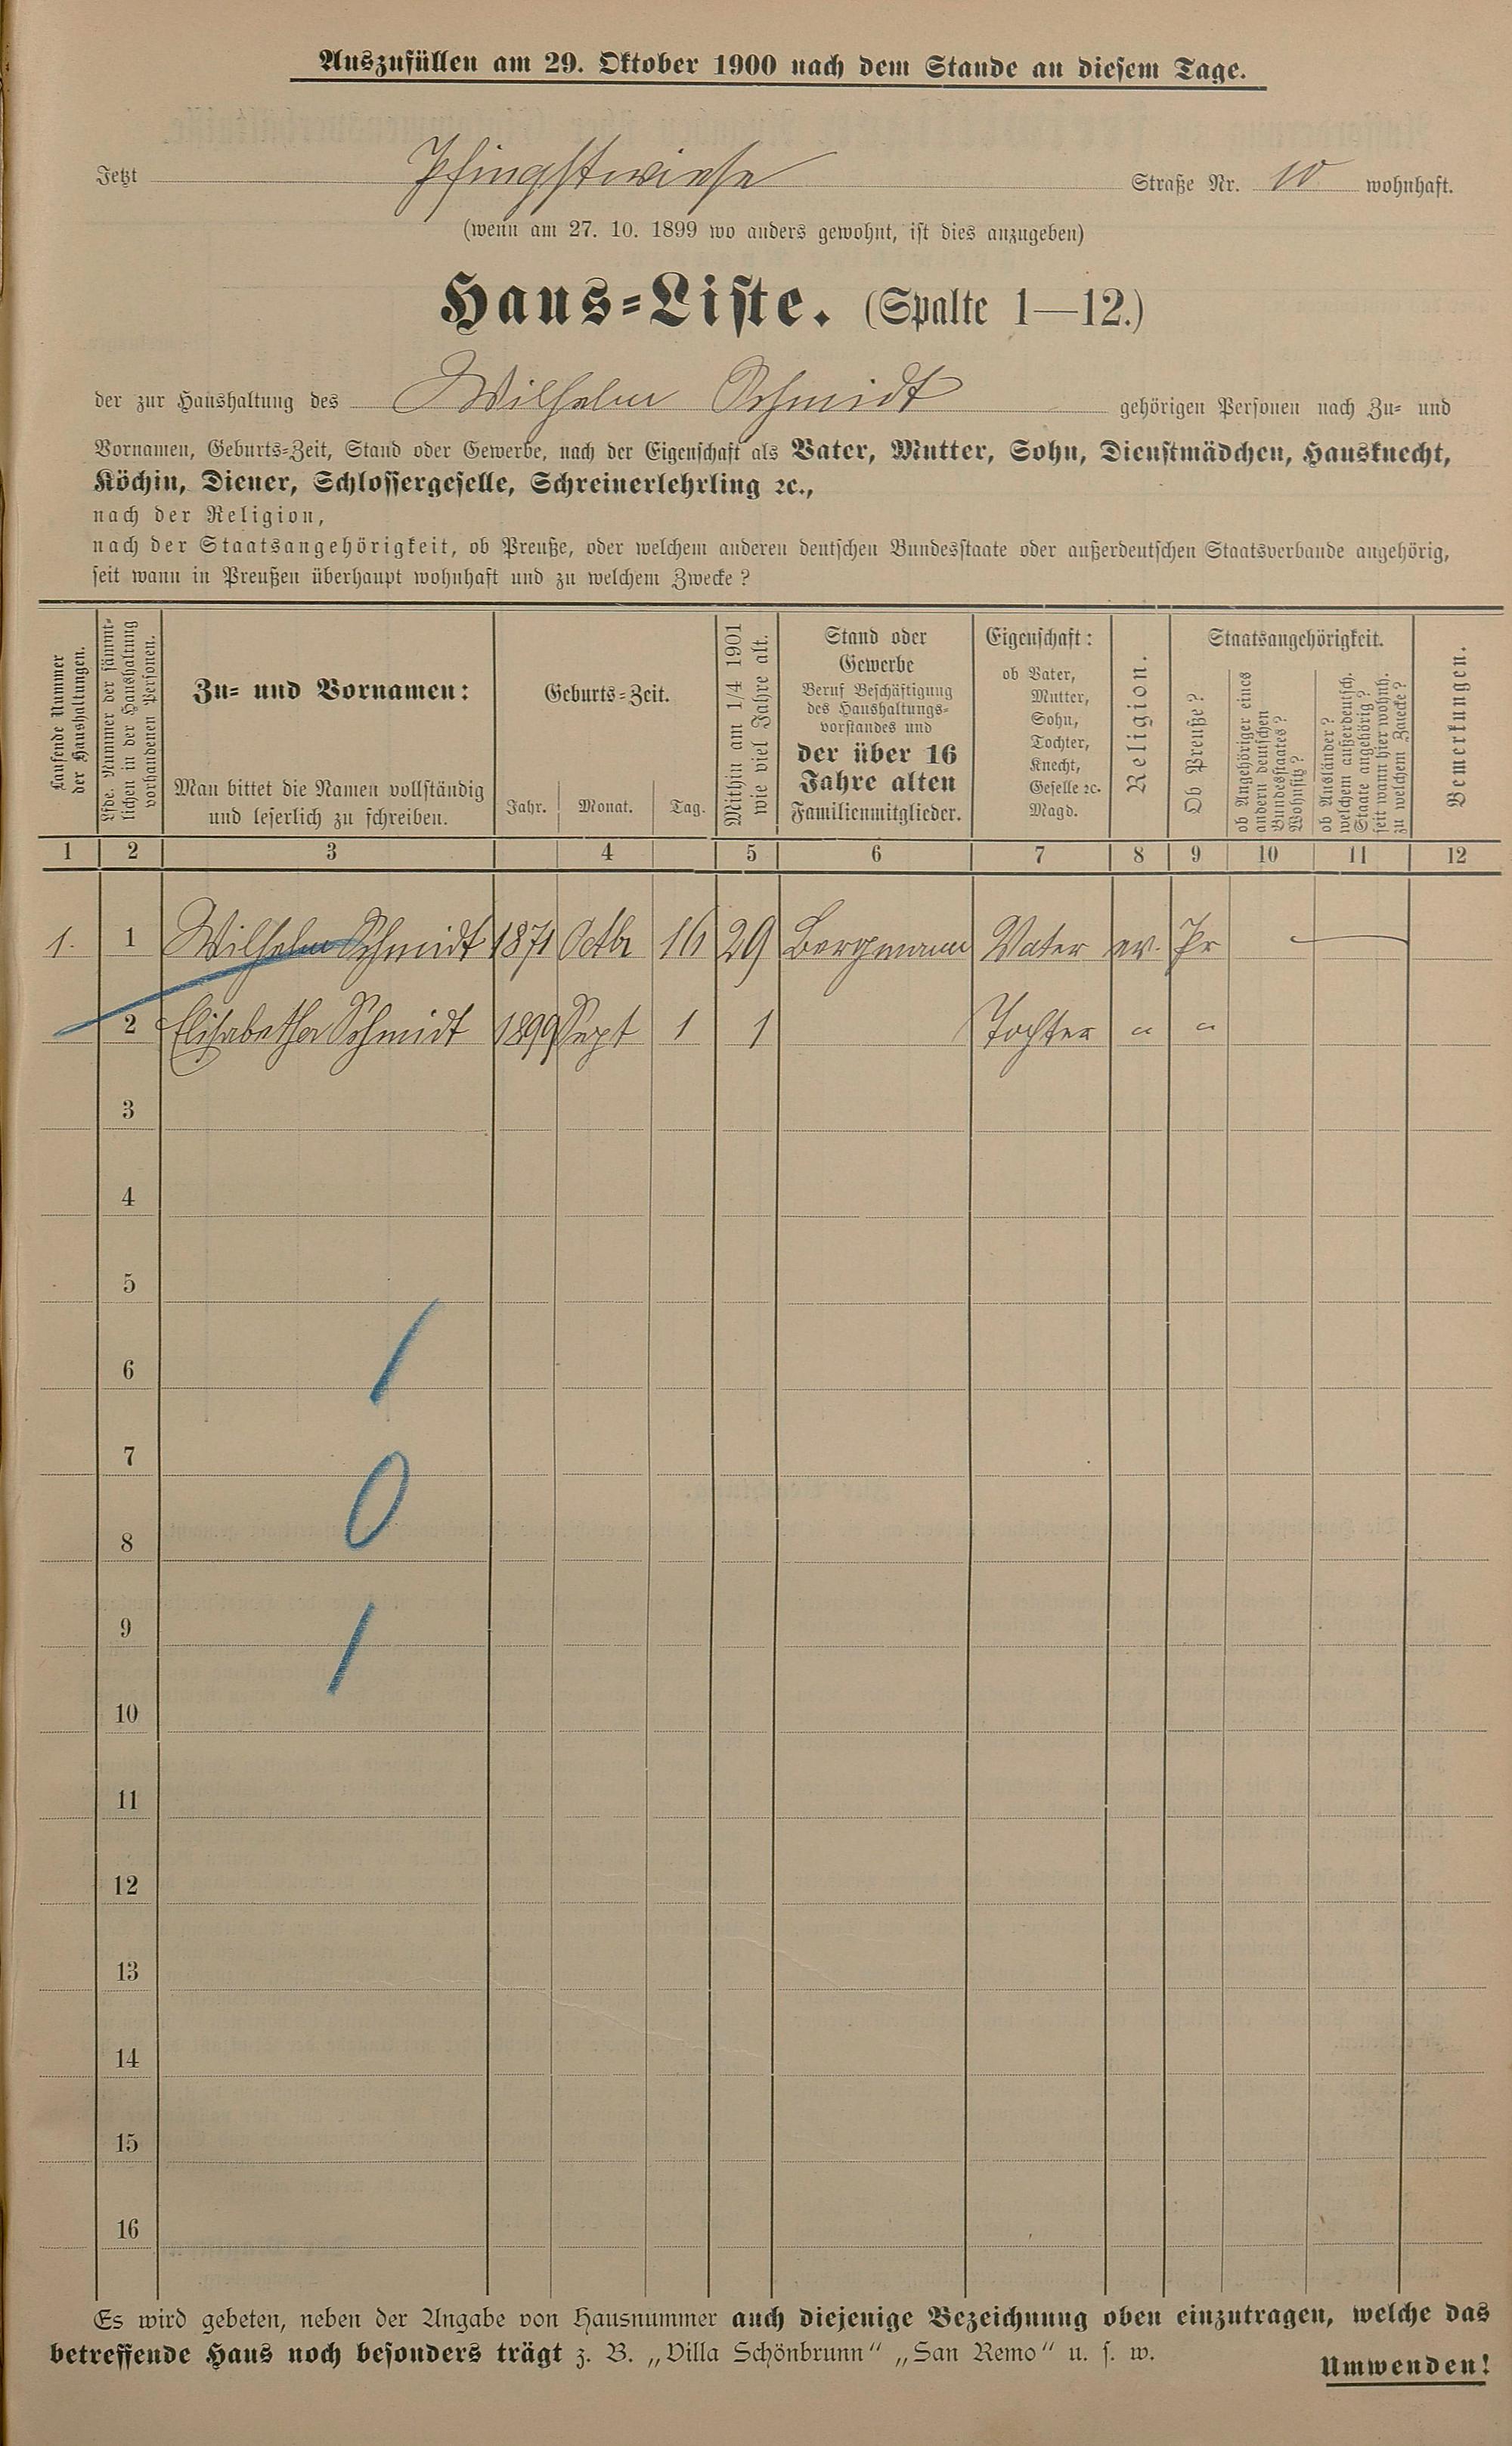 Auszufüllen am 29. Oktober 1900 nach dem Stande an diesem Tage.
Jetzt Pfingstwiese Straße Nr. 10 wohnhaft.
(wenn am 27. 10. 1899 wo anders gewohnt, ist dies anzugeben)
Haus-Liste. (Spalte 1—12.)
der zur Haushaltung des Wilhelm Schmidt gehörigen Personen nach Zu- und
Vornamen, Geburts-Zeit, Stand oder Gewerbe, nach der Eigenschaft als Vater, Mutter, Sohn, Dienstmädchen, Hausknecht,
Köchin, Diener, Schlossergeselle, Schreinerlehrling ꝛc.,
nach der Religion,
nach der Staatsangehörigkeit, ob Preuße, oder welchem anderen deutschen Bundesstaate oder außerdeutschen Staatsverbande angehörig,
seit wann in Preußen überhaupt wohnhaft und zu welchem Zwecke?
Laufende Nummer
der Haushaltungen.
Lfde. Nummer der sämmt-
lichen in der Haushaltung
vorhandenen Personen.
Zu- und Vornamen:
Man bittet die Namen vollständig
und leserlich zu schreiben.
Geburts-Zeit.
Jahr. Monat. Tag.
Mithin am 1/4 1901
wie viel Jahre alt.
Stand oder
Gewerbe
Beruf Beschäftigung
des Haushaltungs-
vorstandes und
der über 16
Jahre alten
Familienmitglieder.
Eigenschaft:
ob Vater,
Mutter,
Sohn,
Tochter,
Knecht,
Geselle ꝛc.
Magd.
Religion.
Staatsangehörigkeit.
Ob Preuße?
ob Angehöriger eines
andern deutschen
Bundesstaates?
Wohnsitz?
ob Ausländer?
welchem außerdeutsch.
Staate angehörig?
seit wann hier wohnh.
zu welchem Zwecke?
Bemerkungen.
1 2 3 4 5 6 7 8 9 10 11 12
1. 1 Wilhelm Schmidt 1871 Octbr 16 29 Bergmann Vater ev. Pr
2 Elisabetha Schmidt 1899 Sept 1 1 Tochter " "
3
4
5
6
1
7
0
8
9
1
10
11
12
13
14
15
16
Es wird gebeten, neben der Angabe von Hausnummer auch diejenige Bezeichnung oben einzutragen, welche das
betreffende Haus noch besonders trägt z. B. „Villa Schönbrunn" „San Remo" u. s. w.
Umwenden!